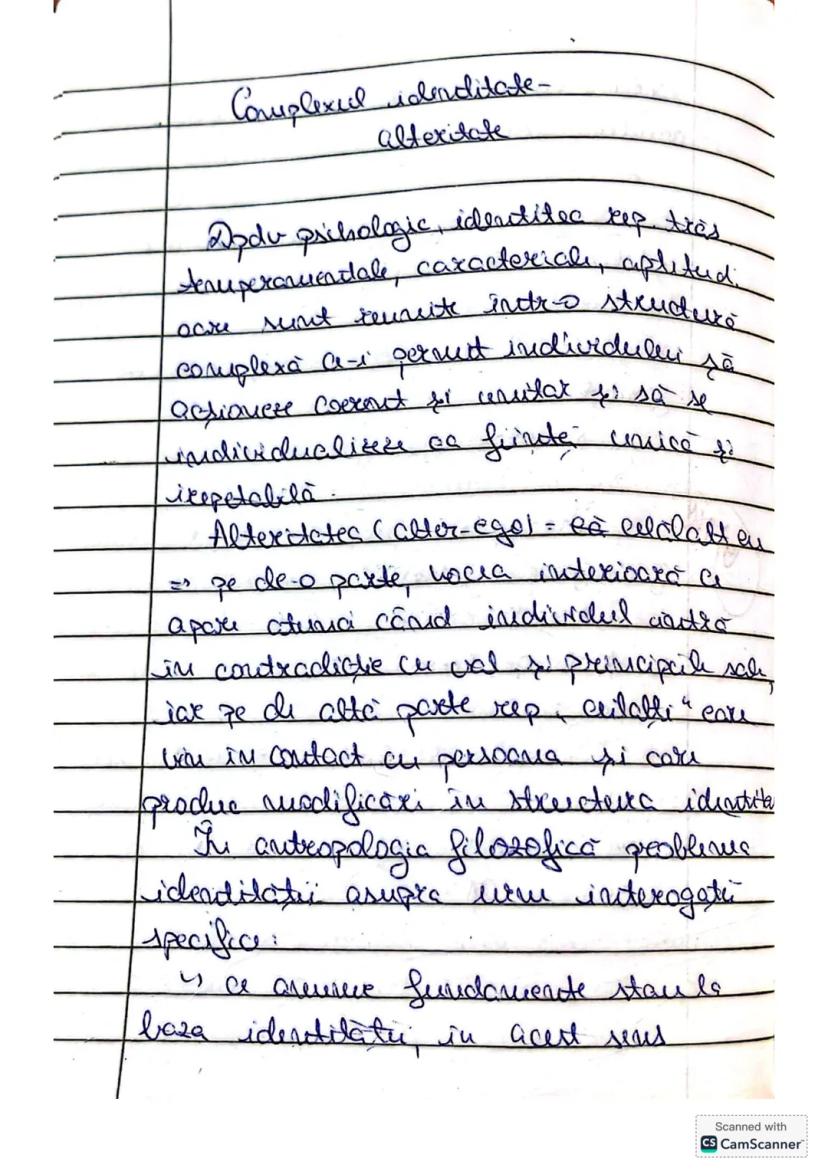 Complexul idenditate-
alteritate
Dpdv psihologic, identitea rep. trăs.
temperamentale, caracteriale, aptitud.
care sunt reunite într-o structură
complexă ce-i permit individului să
acționeze coerent și unitar și să se
individualizeze ca ființă unică și
irepetabilă.
Alteritatea (alter-ego) = celălalt eu
=> pe de-o parte, vocea interioară ce
apare atunci când individul intră
în contradicție cu val și principiile sale,
iar pe de altă parte rep „ceilalți" care
vin în contact cu persoana și care
produc modificări în structura identita
În antropologia filozofică problema
idendității asupra unui interogații
specifice:
↳ ce anume fundamente stau la
baza identității, în acest sens
Scanned with
CS CamScanner